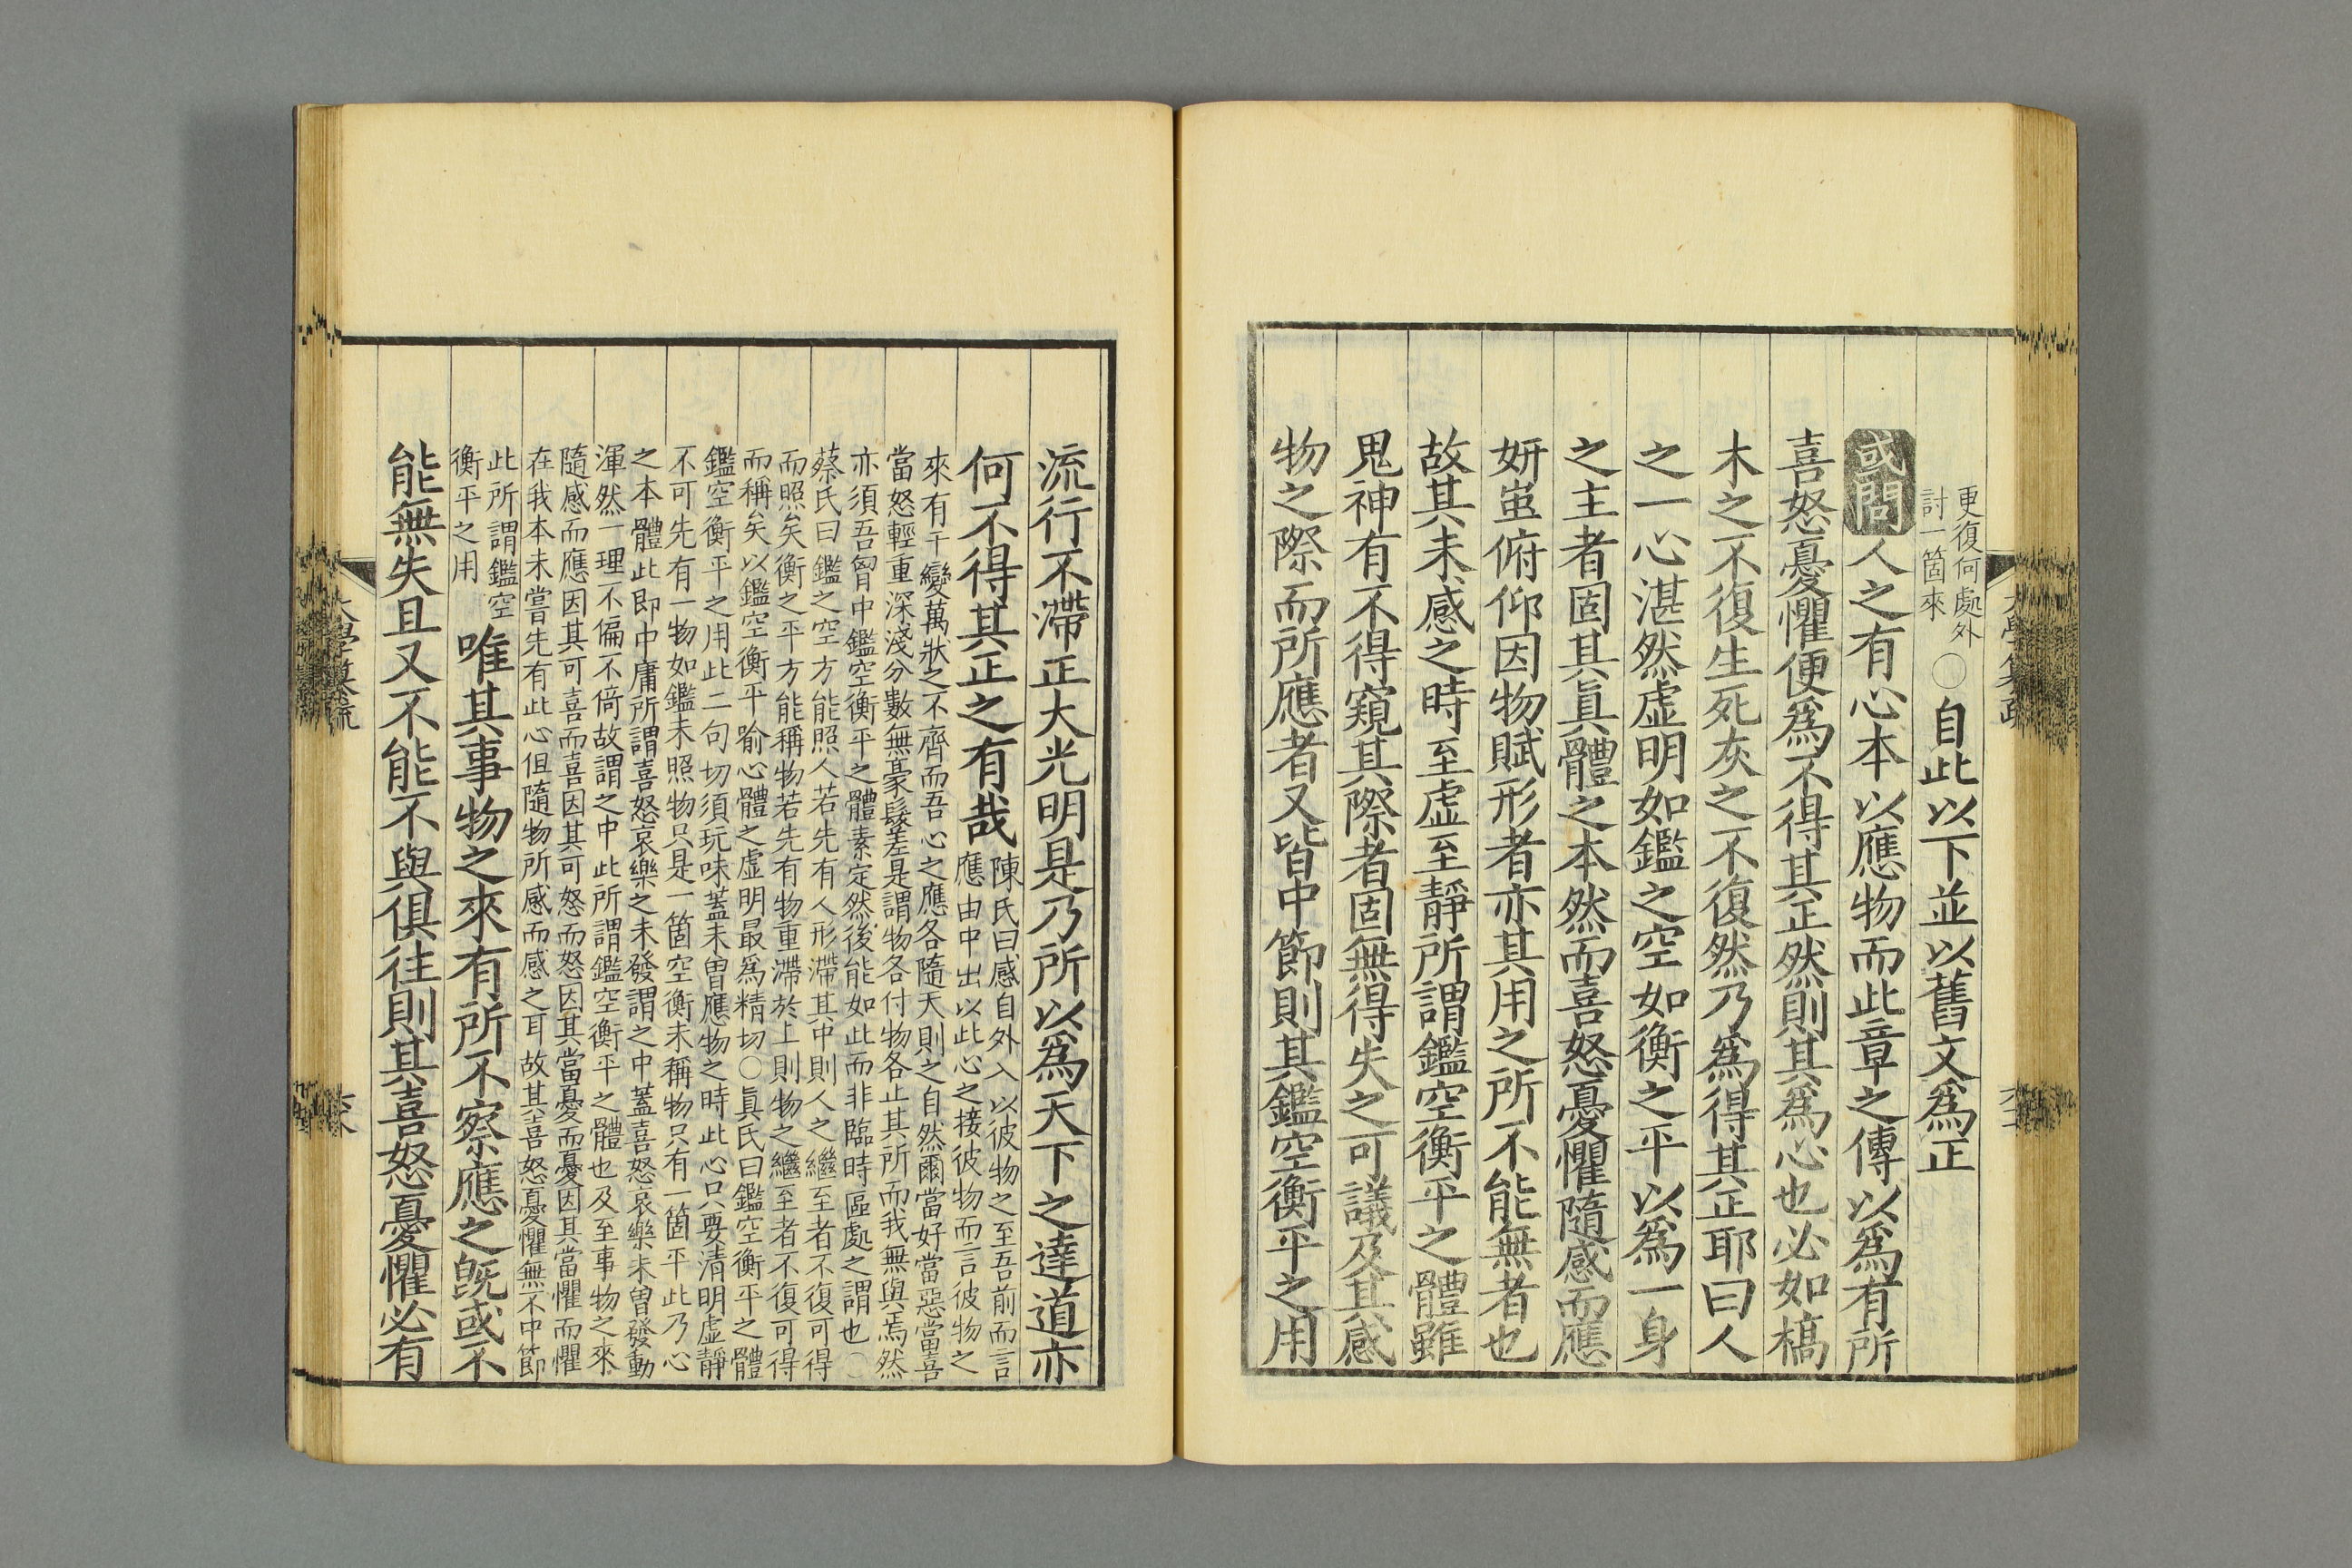 更復何處外
討一箇來
○自此以下並以舊文爲正
或問人之有心本以應物而此章之傳以爲有所
喜怒憂懼便爲不得其正然則其爲心也必如槁
木之不復生死灰之不復然乃爲得其正耶曰人
之一心湛然虛明如鑑之空如衡之平以爲一身
之主者固其眞體之本然而喜怒憂懼隨感而應
妍蚩俯仰因物賦形者亦其用之所不能無者也
故其未感之時至虛至靜所謂鑑空衡平之體雖
鬼神有不得窺其際者固無得失之可議及其感
物之際而所應者又皆中節則其鑑空衡平之用
流行不滯正大光明是乃所以爲天下之達道亦
何不得其正之有哉
陳氏曰感自外入以彼物之至吾前而言
應由中出以此心之接彼物而言彼物之
來有千變萬狀之不齊而吾心之應各隨天則之自然爾當好當惡當喜
當怒輕重深淺分數無豪髮差是謂物各付物各止其所而我無與焉然
亦須吾胷中鑑空衡平之體素定然後能如此而非臨時區處之謂也○
蔡氏曰鑑之空方能照人若先有人形滯其中則人之繼至者不復可得
而照矣衡之平方能稱物若先有物重滯於上則物之繼至者不復可得
而稱矣以鑑空衡平喻心體之虛明最爲精切○眞氏曰鑑空衡平之體
鑑空衡平之用此二句切須玩味蓋未曾應物之時此心只要清明虛靜
不可先有一物如鑑未照物只是一箇空衡未稱物只有一箇平此乃心
之本體此即中庸所謂喜怒哀樂之未發謂之中蓋喜怒哀樂未曾發動
渾然一理不偏不倚故謂之中此所謂鑑空衡平之體也及至事物之來
隨感而應因其可喜而喜因其可怒而怒因其當憂而憂因其當懼而懼
在我本未嘗先有此心但隨物所感而感之耳故其喜怒憂懼無不中節
此所謂鑑空
衡平之用
唯其事物之來有所不察應之旣或不
能無失且又不能不與俱往則其喜怒憂懼必有